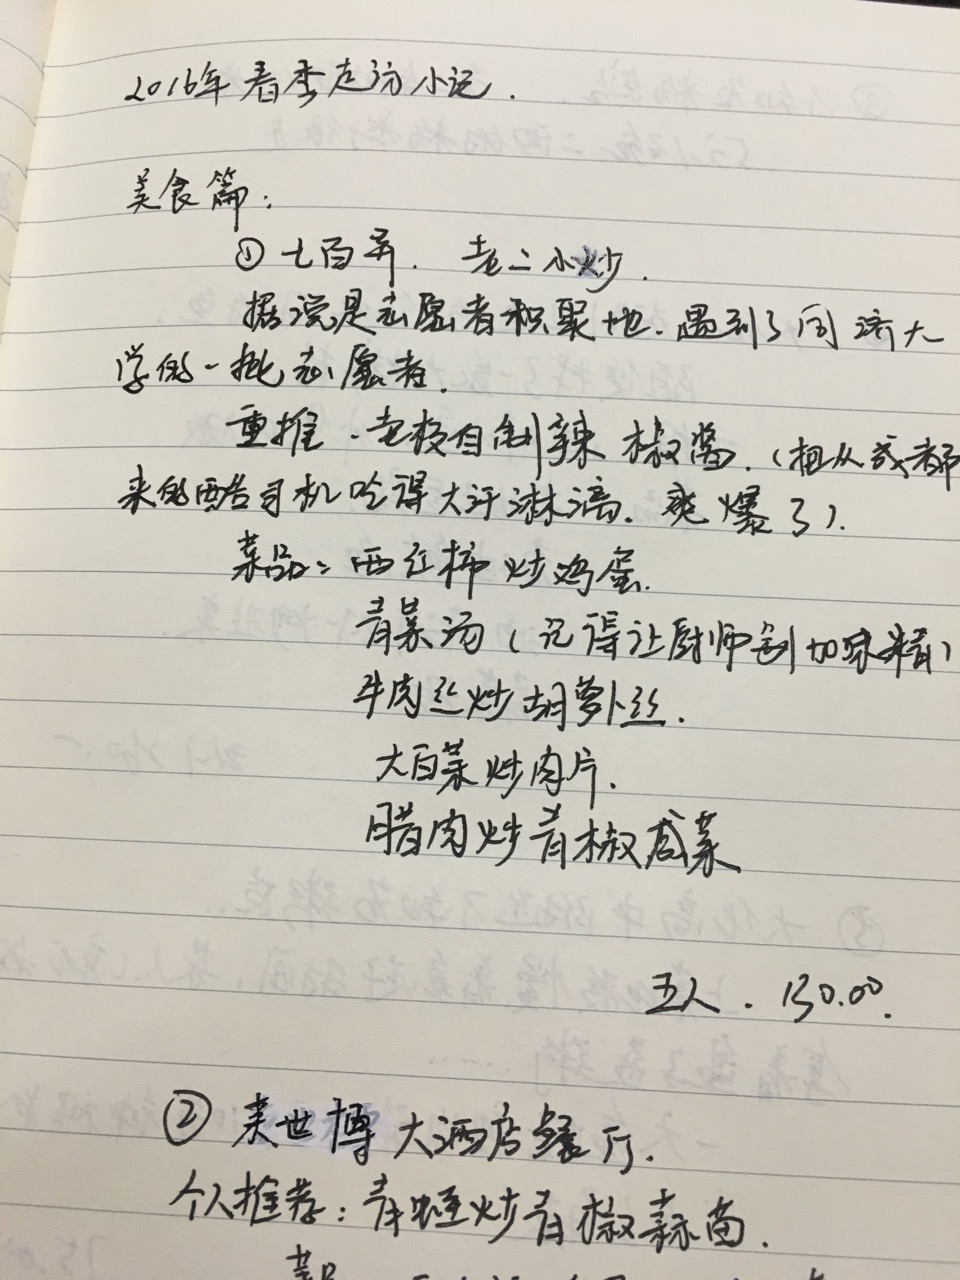 2016年春季走访小记.
美食篇:
① 七百弄. 老二小炒.
据说是志愿者积聚地.遇到了同济大
学的一批志愿者.
重推.老板自制辣椒酱.(想从成都
来的酷司机吃得大汗淋漓.爽爆了).
菜品:西红柿炒鸡蛋.
青菜汤(记得让厨师别加味精)
牛肉丝炒胡萝卜丝.
大白菜炒肉片.
腊肉炒青椒咸菜
五人. 130.00.
② 莱世博大酒店餐厅.
个人推荐:青蛙炒青椒蒜苗.